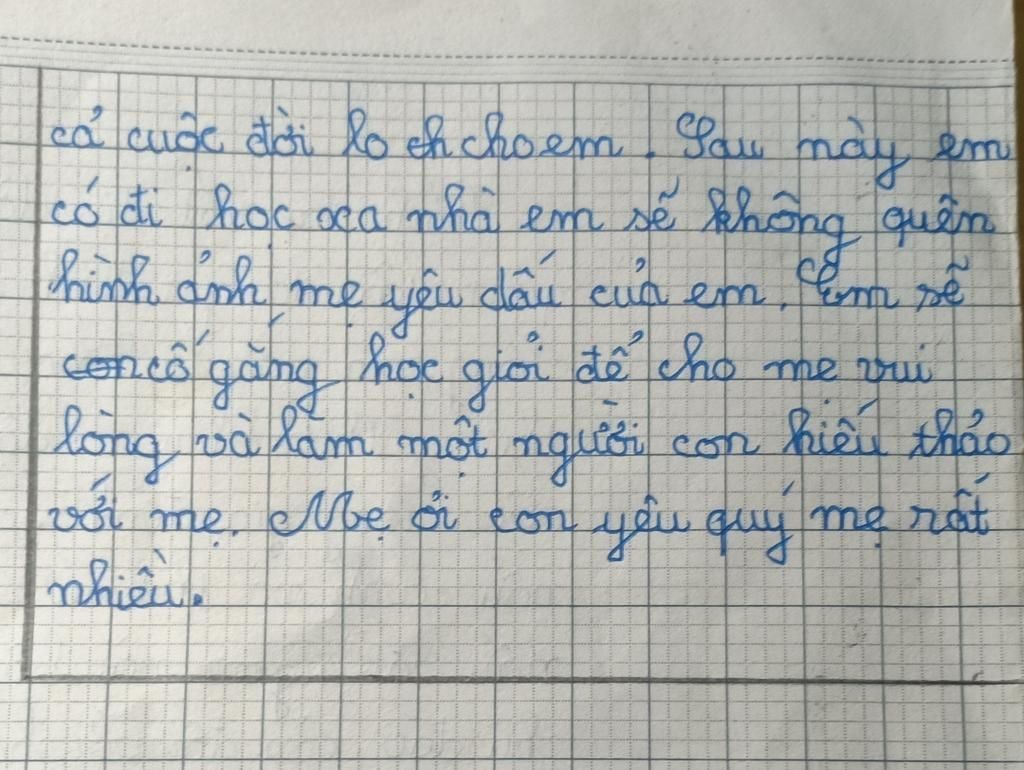 cả cuộc đời lo ch cho em. Sau này em
có đi học xa nhà em sẽ không quên
hình ảnh mẹ yêu dấu của em. Em sẽ
con cố gắng học giỏi để cho mẹ vui
lòng và làm một người con hiếu thảo
với mẹ. Mẹ ơi con yêu quý mẹ rất
nhiều.